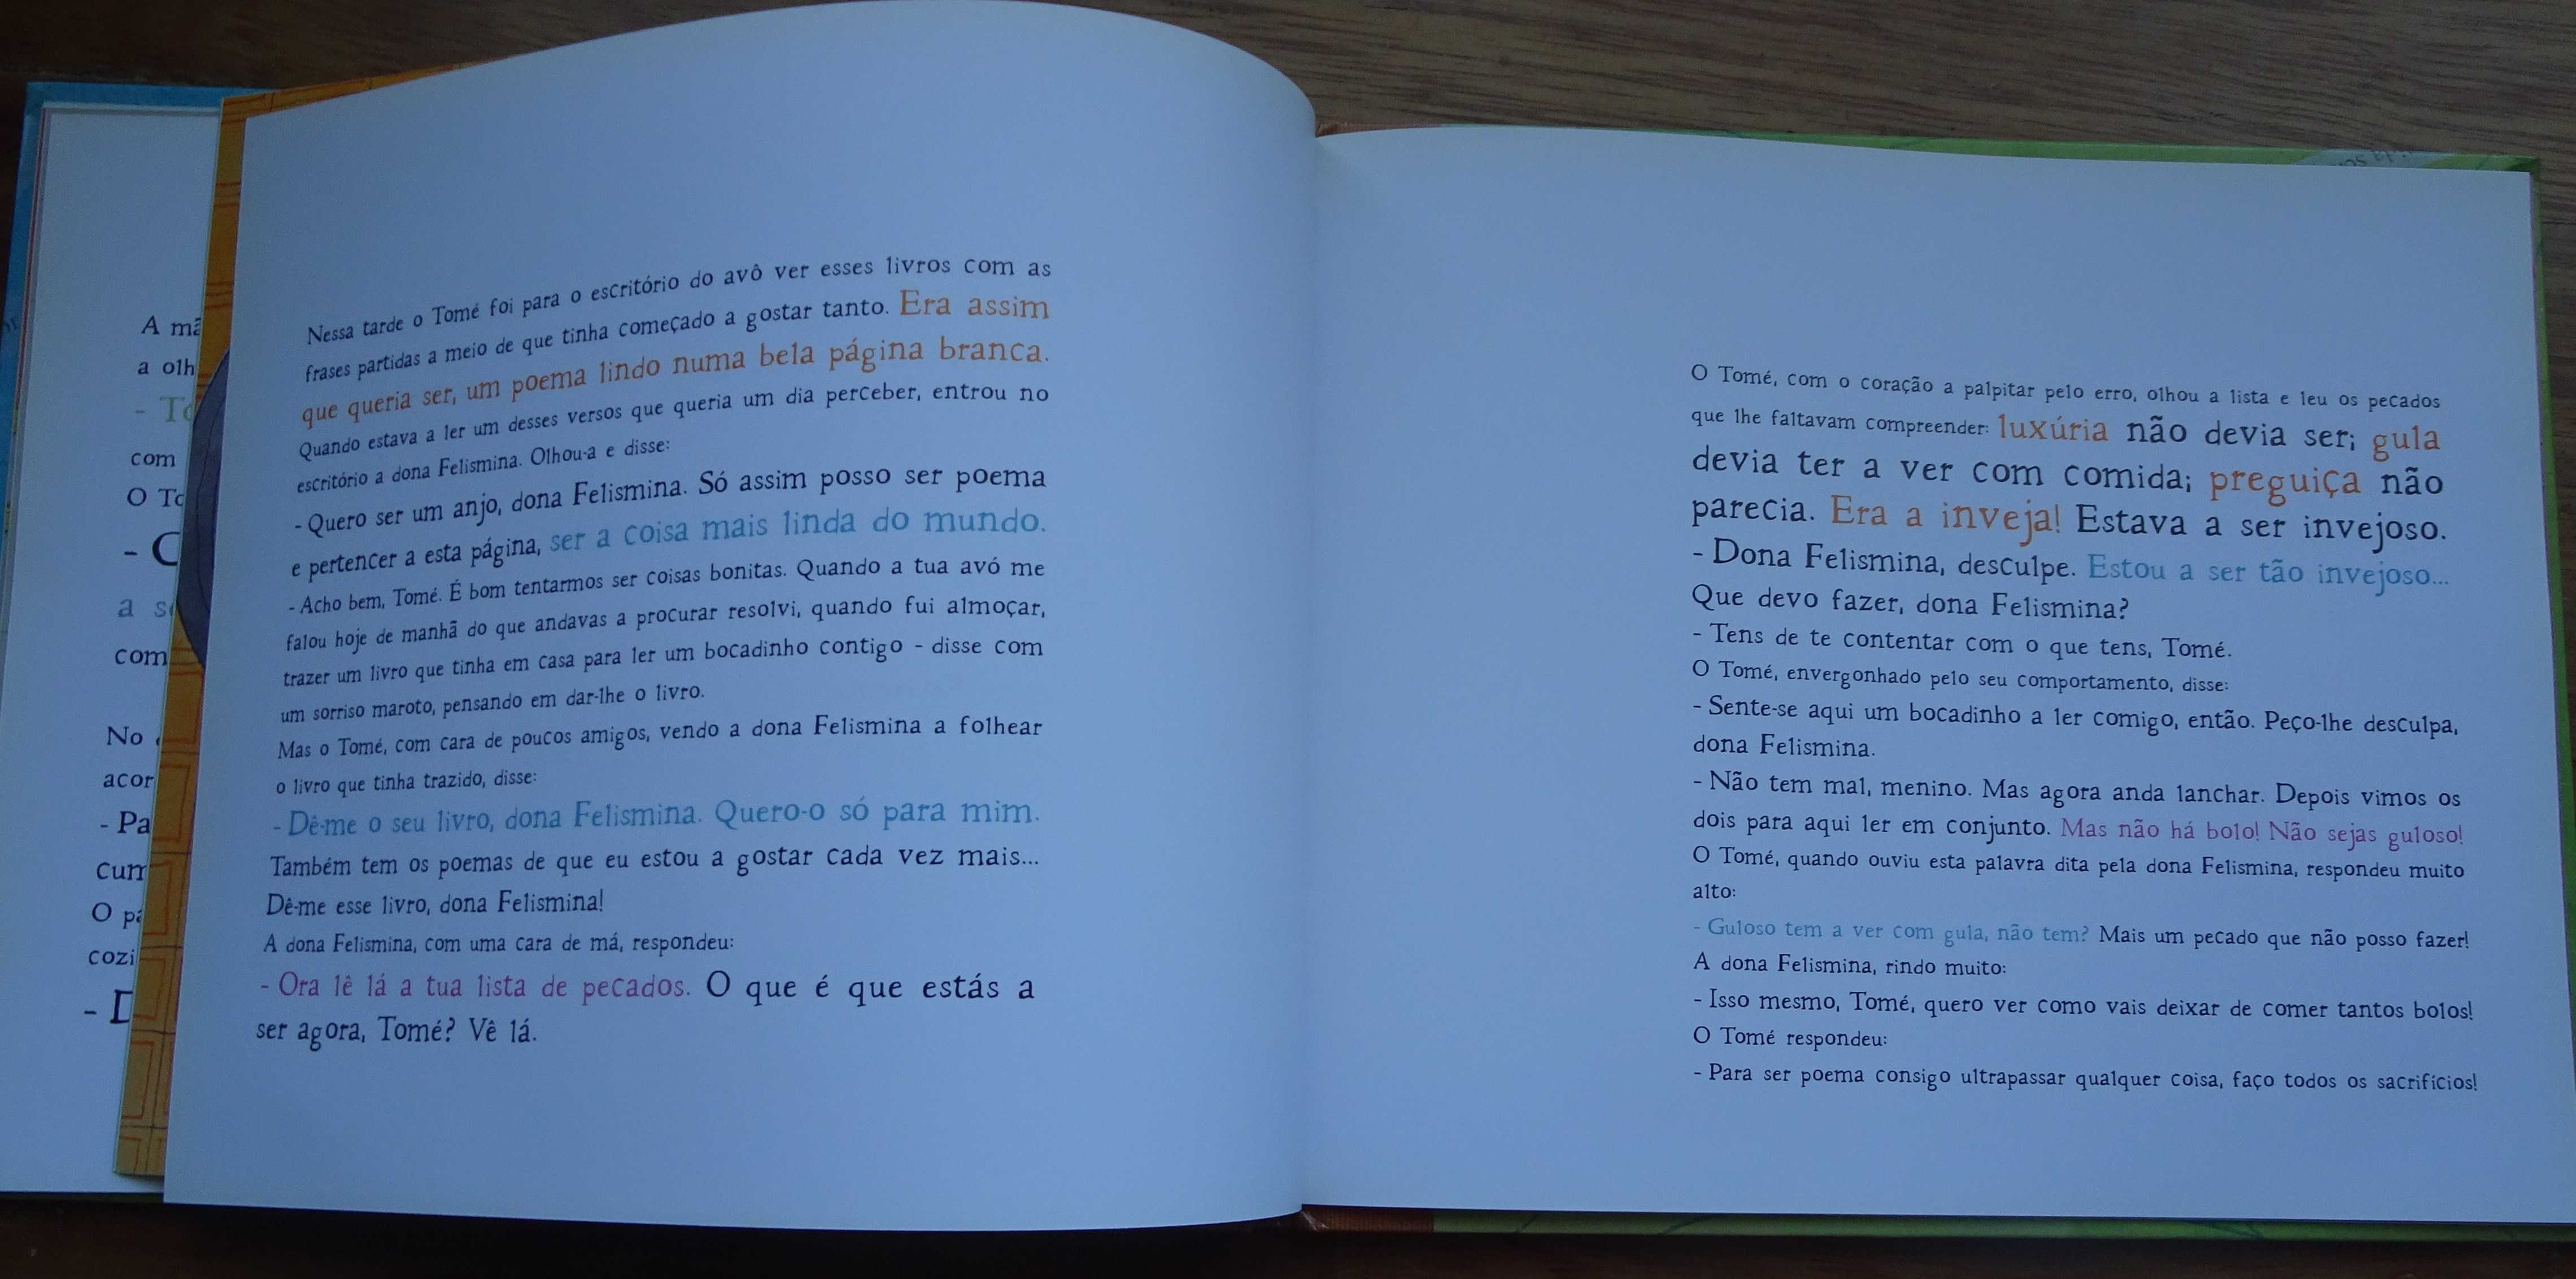 A mã
a olh
- To
com
O To
- C
a s
com
No
acor
- Pa
cum
O pa
cozi
- D
Nessa tarde o Tomé foi para o escritório do avô ver esses livros com as
frases partidas a meio de que tinha começado a gostar tanto. Era assim
que queria ser, um poema lindo numa bela página branca.
Quando estava a ler um desses versos que queria um dia perceber, entrou no
escritório a dona Felismina. Olhou-a e disse:
- Quero ser um anjo, dona Felismina. Só assim posso ser poema
e pertencer a esta página, ser a coisa mais linda do mundo.
- Acho bem, Tomé. É bom tentarmos ser coisas bonitas. Quando a tua avó me
falou hoje de manhã do que andavas a procurar resolvi, quando fui almoçar,
trazer um livro que tinha em casa para ler um bocadinho contigo - disse com
um sorriso maroto, pensando em dar-lhe o livro.
Mas o Tomé, com cara de poucos amigos, vendo a dona Felismina a folhear
o livro que tinha trazido, disse:
- Dê-me o seu livro, dona Felismina. Quero-o só para mim.
Também tem os poemas de que eu estou a gostar cada vez mais...
Dê-me esse livro, dona Felismina!
A dona Felismina, com uma cara de má, respondeu:
- Ora lê lá a tua lista de pecados. O que é que estás a
ser agora, Tomé? Vê lá.
O Tomé, com o coração a palpitar pelo erro, olhou a lista e leu os pecados
que lhe faltavam compreender: luxúria não devia ser; gula
devia ter a ver com comida; preguiça não
parecia. Era a inveja! Estava a ser invejoso.
- Dona Felismina, desculpe. Estou a ser tão invejoso...
Que devo fazer, dona Felismina?
- Tens de te contentar com o que tens, Tomé.
O Tomé, envergonhado pelo seu comportamento, disse:
- Sente-se aqui um bocadinho a ler comigo, então. Peço-lhe desculpa,
dona Felismina.
- Não tem mal, menino. Mas agora anda lanchar. Depois vimos os
dois para aqui ler em conjunto. Mas não há bolo! Não sejas guloso!
O Tomé, quando ouviu esta palavra dita pela dona Felismina, respondeu muito
alto:
- Guloso tem a ver com gula, não tem? Mais um pecado que não posso fazer!
A dona Felismina, rindo muito:
- Isso mesmo, Tomé, quero ver como vais deixar de comer tantos bolos!
O Tomé respondeu:
- Para ser poema consigo ultrapassar qualquer coisa, faço todos os sacrifícios!